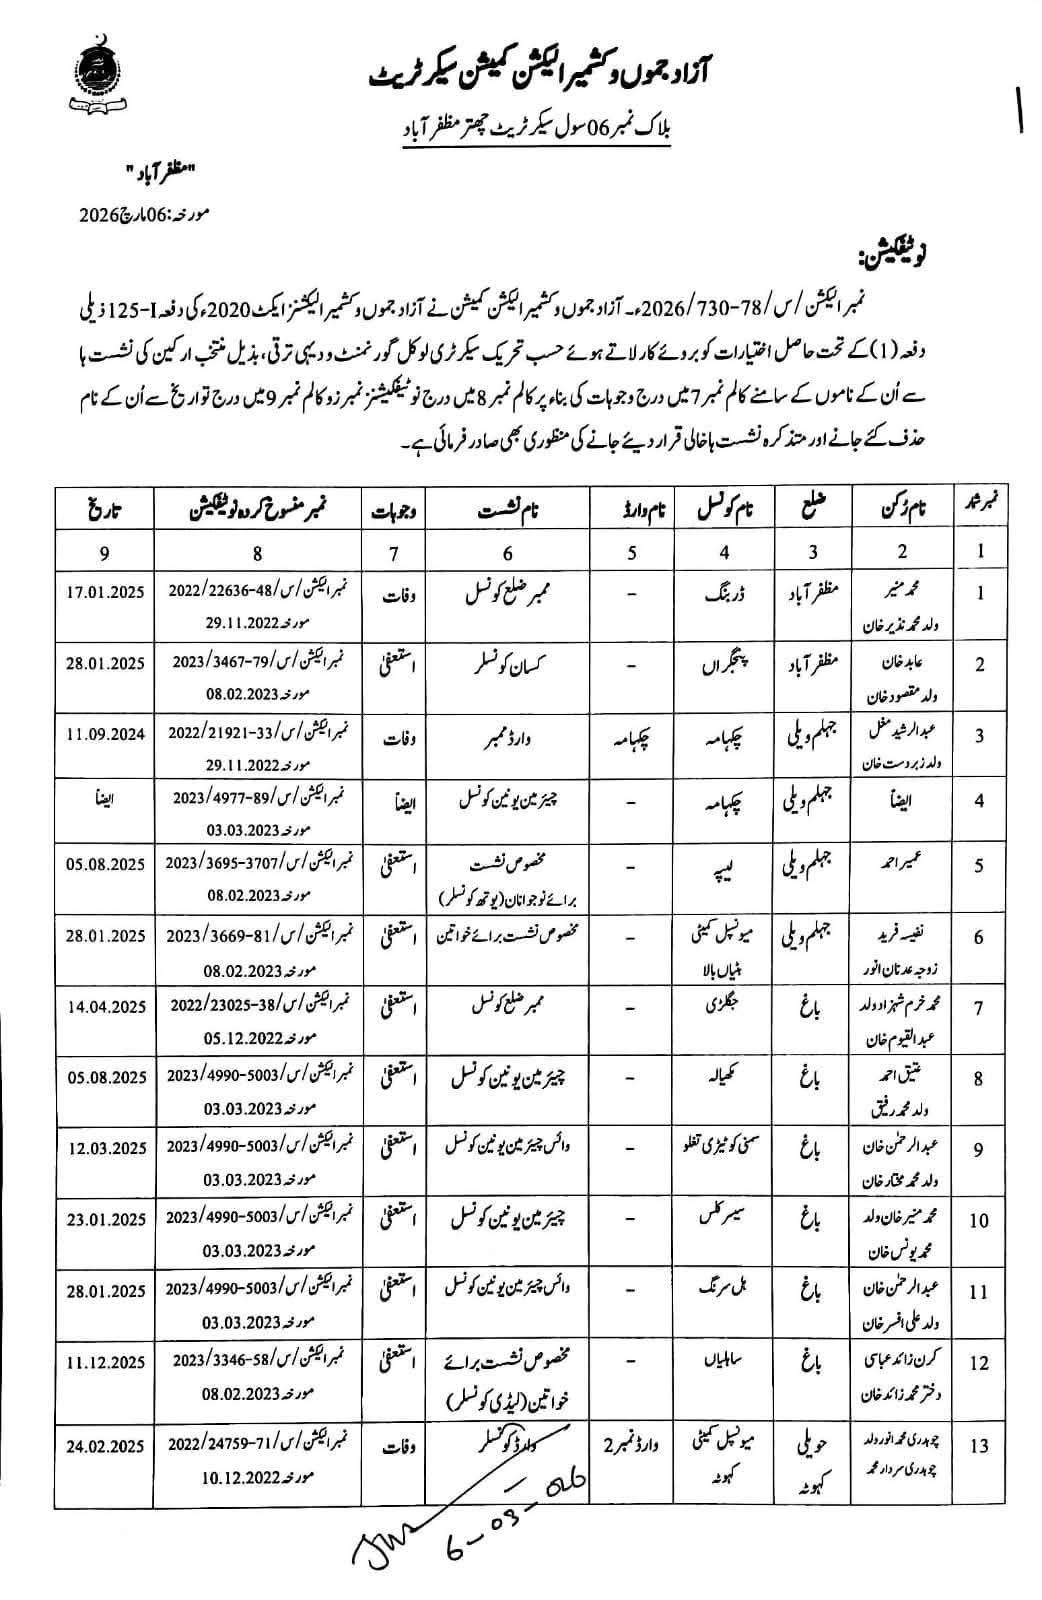 آزاد جموں و کشمیر الیکشن کمیشن سیکرٹریٹ
بلاک نمبر 06 سول سیکرٹریٹ چھتر مظفر آباد
"مظفر آباد"
مورخہ: 06 مارچ 2026
نوٹیفکیشن:
نمبر الیکشن/س/78-730/2026ء۔ آزاد جموں و کشمیر الیکشن کمیشن نے آزاد جموں و کشمیر الیکشنز ایکٹ 2020ء کی دفعہ I-125 ذیلی
دفعہ (1) کے تحت حاصل اختیارات کو بروئے کار لاتے ہوئے حسب تحریک سیکرٹری لوکل گورنمنٹ و دیہی ترقی، بذیل منتخب اراکین کی نشست ہا
سے اُن کے ناموں کے سامنے کالم نمبر 7 میں درج وجوہات کی بناء پر کالم نمبر 8 میں درج نوٹیفکیشنز نمبرز و کالم نمبر 9 میں درج تواریخ سے اُن کے نام
حذف کئے جانے اور متذکرہ نشست ہا خالی قرار دیئے جانے کی منظوری بھی صادر فرمائی ہے۔
نمبر شمار نام رُکن ضلع نام کونسل نام وارڈ نام نشست وجوہات نمبر منسوخ کردہ نوٹیفکیشن تاریخ
1 2 3 4 5 6 7 8 9
1 محمد منیر مظفر آباد ڈرنگ - ممبر ضلع کونسل وفات نمبر الیکشن/س/48-22636/2022 17.01.2025
ولد محمد نذیر خان مورخہ 29.11.2022
2 عابد خان مظفر آباد پنجگراں - کسان کونسلر استعفیٰ نمبر الیکشن/س/79-3467/2023 28.01.2025
ولد مقصود خان مورخہ 08.02.2023
3 عبدالرشید مغل جہلم ویلی چکہامہ چکہامہ وارڈ ممبر وفات نمبر الیکشن/س/33-21921/2022 11.09.2024
ولد زبردست خان مورخہ 29.11.2022
4 ایضاً جہلم ویلی چکہامہ - چیئرمین یونین کونسل ایضاً نمبر الیکشن/س/89-4977/2023 ایضاً
مورخہ 03.03.2023
5 عمیر احمد جہلم ویلی لیپہ - مخصوص نشست استعفیٰ نمبر الیکشن/س/3707-3695/2023 05.08.2025
برائے نوجوانان (یوتھ کونسلر) مورخہ 08.02.2023
6 نفیسہ فرید جہلم ویلی میونسپل کمیٹی - مخصوص نشست برائے خواتین استعفیٰ نمبر الیکشن/س/81-3669/2023 28.01.2025
زوجہ عدنان انور ہٹیاں بالا مورخہ 08.02.2023
7 محمد خرم شہزاد ولد باغ جگلڑی - ممبر ضلع کونسل استعفیٰ نمبر الیکشن/س/38-23025/2022 14.04.2025
عبدالقیوم خان مورخہ 05.12.2022
8 عتیق احمد باغ کھیالہ - چیئرمین یونین کونسل استعفیٰ نمبر الیکشن/س/5003-4990/2023 05.08.2025
ولد محمد رفیق مورخہ 03.03.2023
9 عبدالرحمٰن خان باغ سمنی کوٹیڑی تغلو - وائس چیئرمین یونین کونسل استعفیٰ نمبر الیکشن/س/5003-4990/2023 12.03.2025
ولد محمد مختار خان مورخہ 03.03.2023
10 محمد منیر خان ولد باغ سیسر کلس - چیئرمین یونین کونسل استعفیٰ نمبر الیکشن/س/5003-4990/2023 23.01.2025
محمد یونس خان مورخہ 03.03.2023
11 عبدالرحمٰن خان باغ ہل سرنگ - وائس چیئرمین یونین کونسل استعفیٰ نمبر الیکشن/س/5003-4990/2023 28.01.2025
ولد علی افسر خان مورخہ 03.03.2023
12 کرن زائد عباسی باغ ساہلیاں - مخصوص نشست برائے استعفیٰ نمبر الیکشن/س/58-3346/2023 11.12.2025
دختر محمد زائد خان خواتین (لیڈی کونسلر) مورخہ 08.02.2023
13 چوہدری محمد انور ولد حویلی میونسپل کمیٹی وارڈ نمبر 2 وارڈ کونسلر وفات نمبر الیکشن/س/71-24759/2022 24.02.2025
چوہدری سردار محمد کہوٹہ کہوٹہ مورخہ 10.12.2022
6-03-026